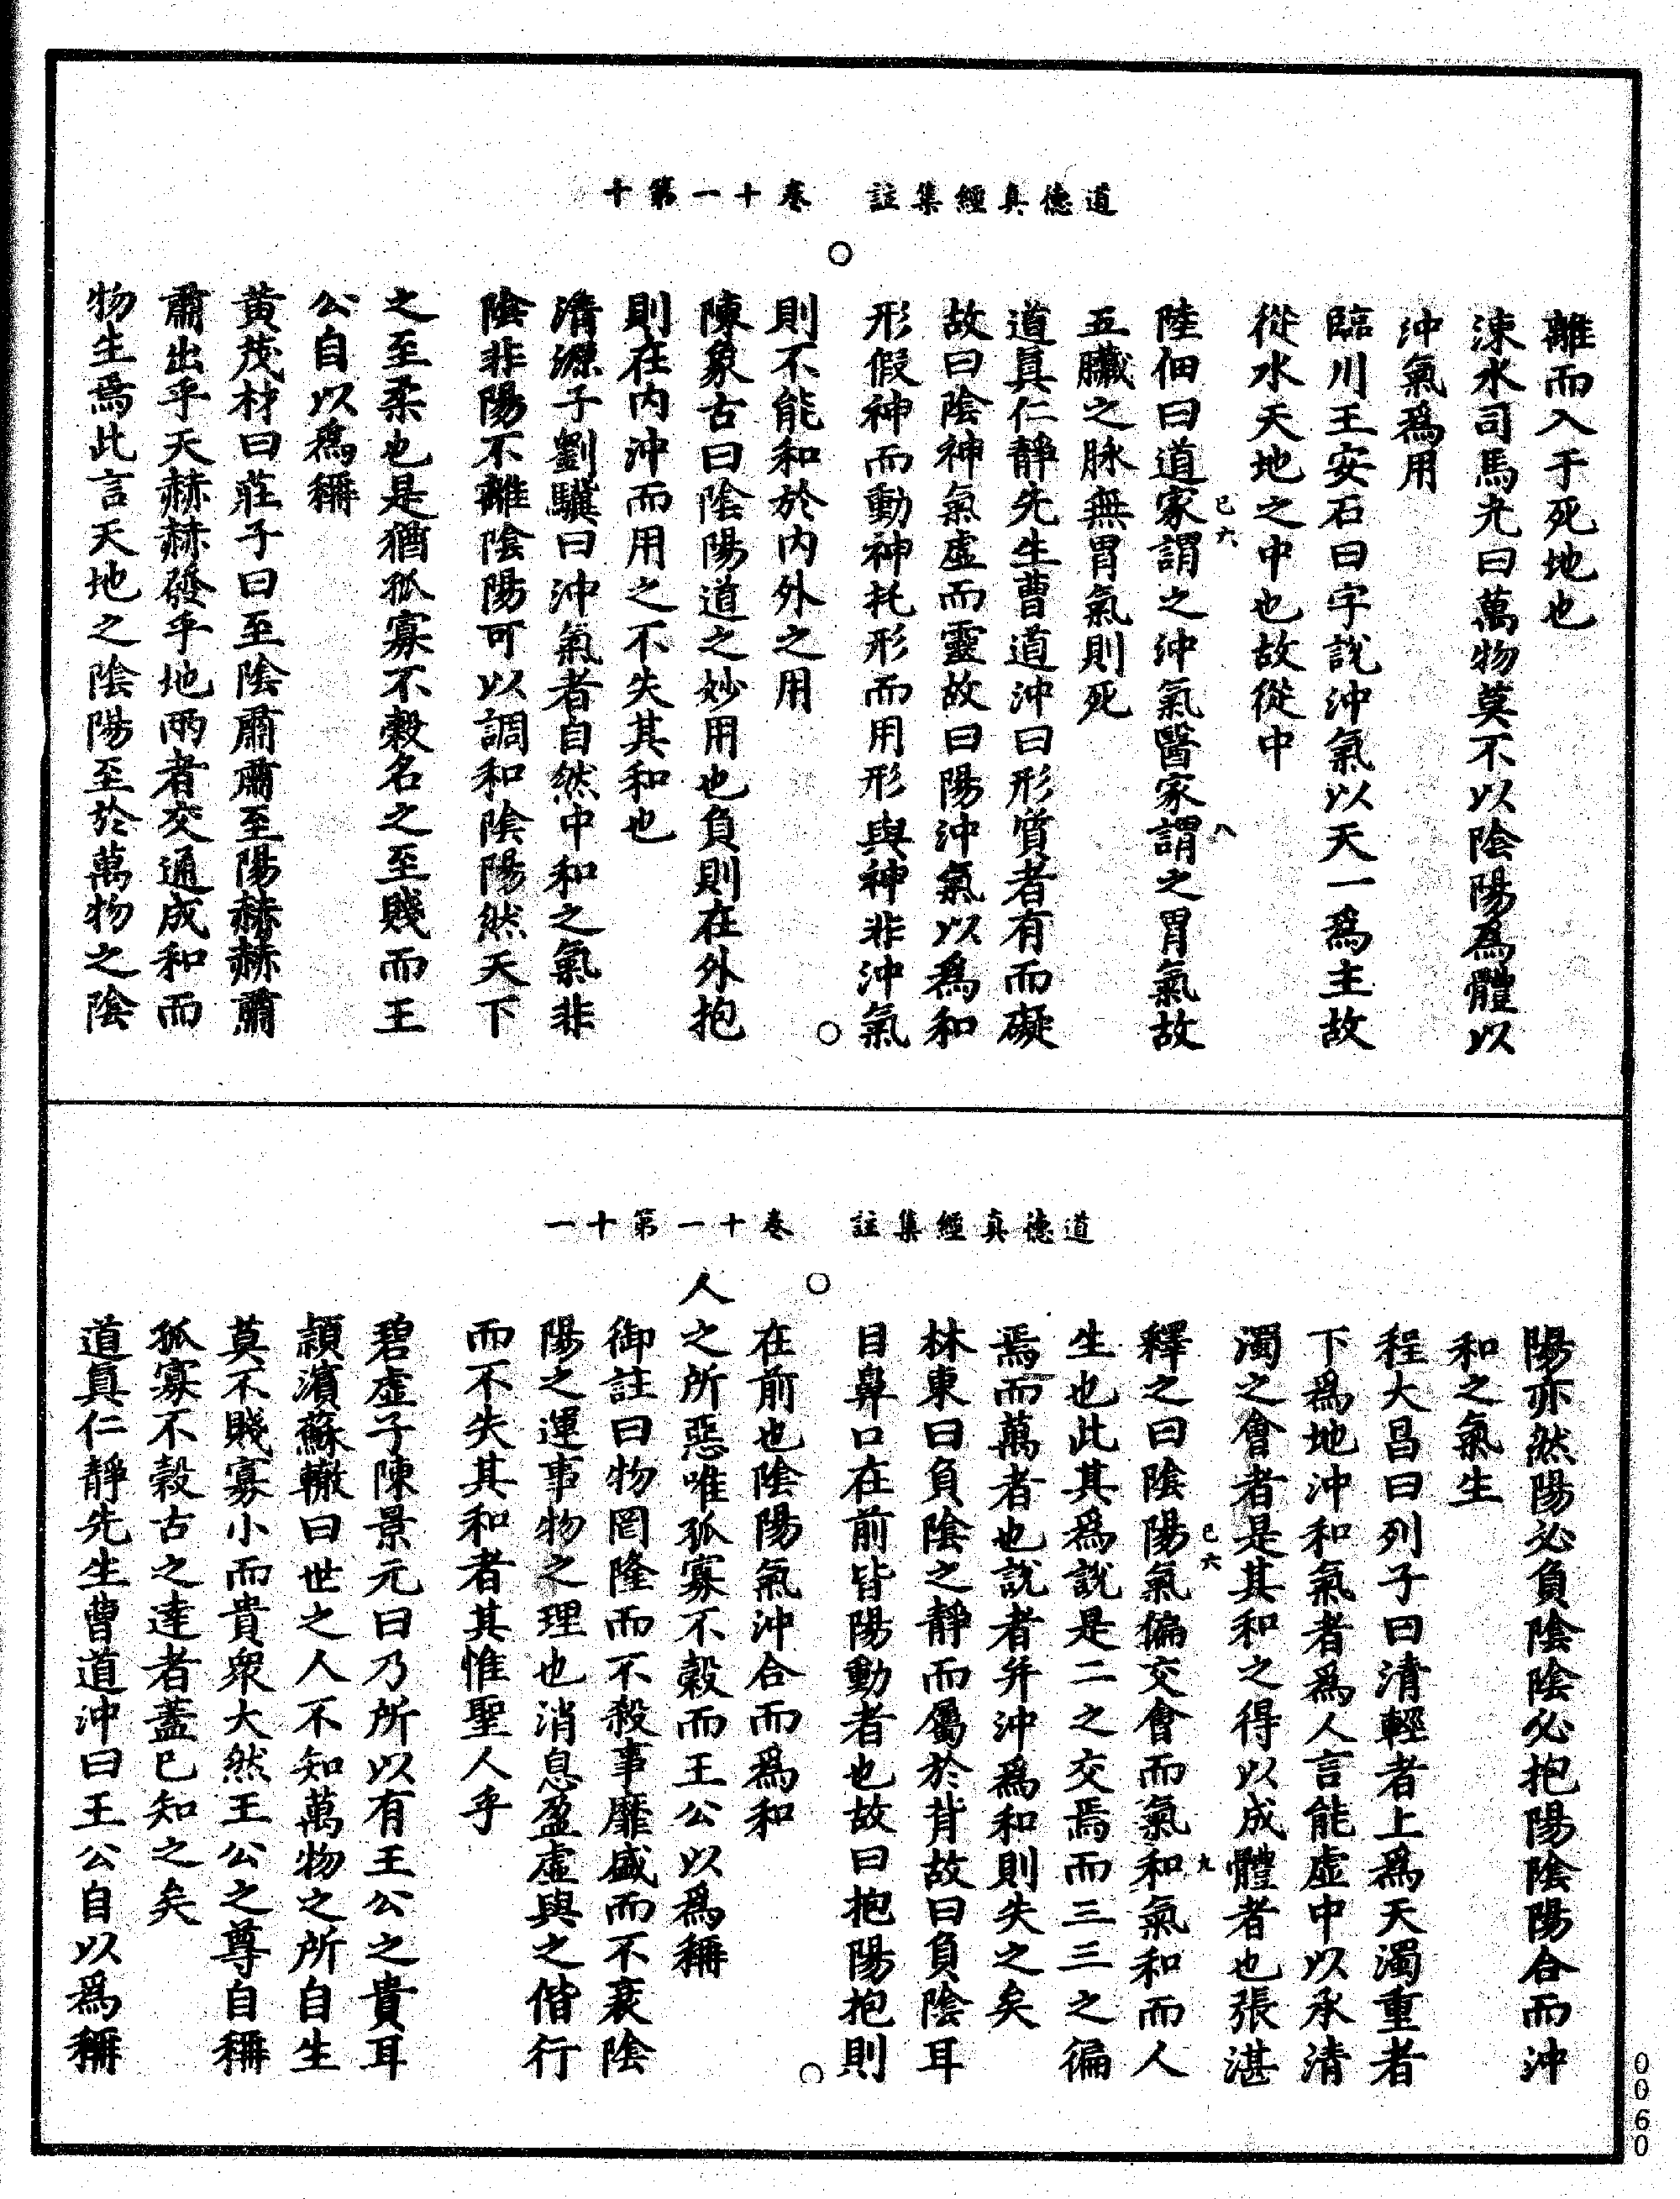 道德真經集註　卷十一第十
離而入于死地也
涑水司馬光曰萬物莫不以陰陽爲體以
沖氣爲用
臨川王安石曰字說沖氣以天一爲主故
從水天地之中也故從中
己六　八
陸佃曰道家謂之沖氣醫家謂之胃氣故
五臟之脉無胃氣則死
道真仁靜先生曹道沖曰形質者有而礙
故曰陰神氣虛而靈故曰陽沖氣以爲和
形假神而動神托形而用形與神非沖氣
則不能和於内外之用
陳象古曰陰陽道之妙用也負則在外抱
則在内沖而用之不失其和也
清源子劉驥曰沖氣者自然中和之氣非
陰非陽不離陰陽可以調和陰陽然天下
之至柔也是猶孤寡不穀名之至賤而王
公自以爲稱
黃茂材曰莊子曰至陰肅肅至陽赫赫肅
肅出乎天赫赫發乎地兩者交通成和而
物生焉此言天地之陰陽至於萬物之陰
道德真經集註　卷十一第十一
陽亦然陽必負陰陰必抱陽陰陽合而沖
和之氣生
程大昌曰列子曰清輕者上爲天濁重者
下爲地沖和氣者爲人言能虛中以承清
濁之會者是其和之得以成體者也張湛
己六　九
釋之曰陰陽氣徧交會而氣和氣和而人
生也此其爲說是二之交焉而三三之徧
焉而萬者也說者并沖爲和則失之矣
林東曰負陰之靜而屬於背故曰負陰耳
目鼻口在前皆陽動者也故曰抱陽抱則
在前也陰陽氣沖合而爲和
人之所惡唯孤寡不穀而王公以爲稱
御註曰物罔隆而不殺事靡盛而不衰陰
陽之運事物之理也消息盈虛與之偕行
而不失其和者其惟聖人乎
碧虛子陳景元曰乃所以有王公之貴耳
頴濱蘇轍曰世之人不知萬物之所自生
莫不賤寡小而貴衆大然王公之尊自稱
孤寡不穀古之達者蓋已知之矣
道真仁靜先生曹道沖曰王公自以爲稱
0060